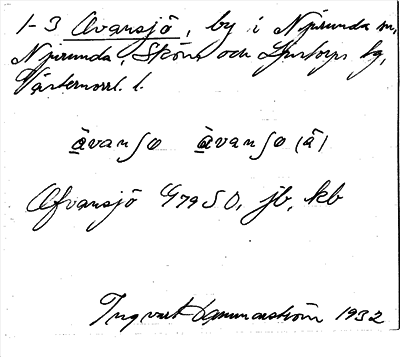 1-3 Avansjö, by i Njurunda sn,
Njurunda, Sköns och Ljustorps tg,
Västernorrl. l.
àvanʃo àvanʃo (â)
Afvansjö G79SO, jb, kb
Ingvart Hammarström 1932